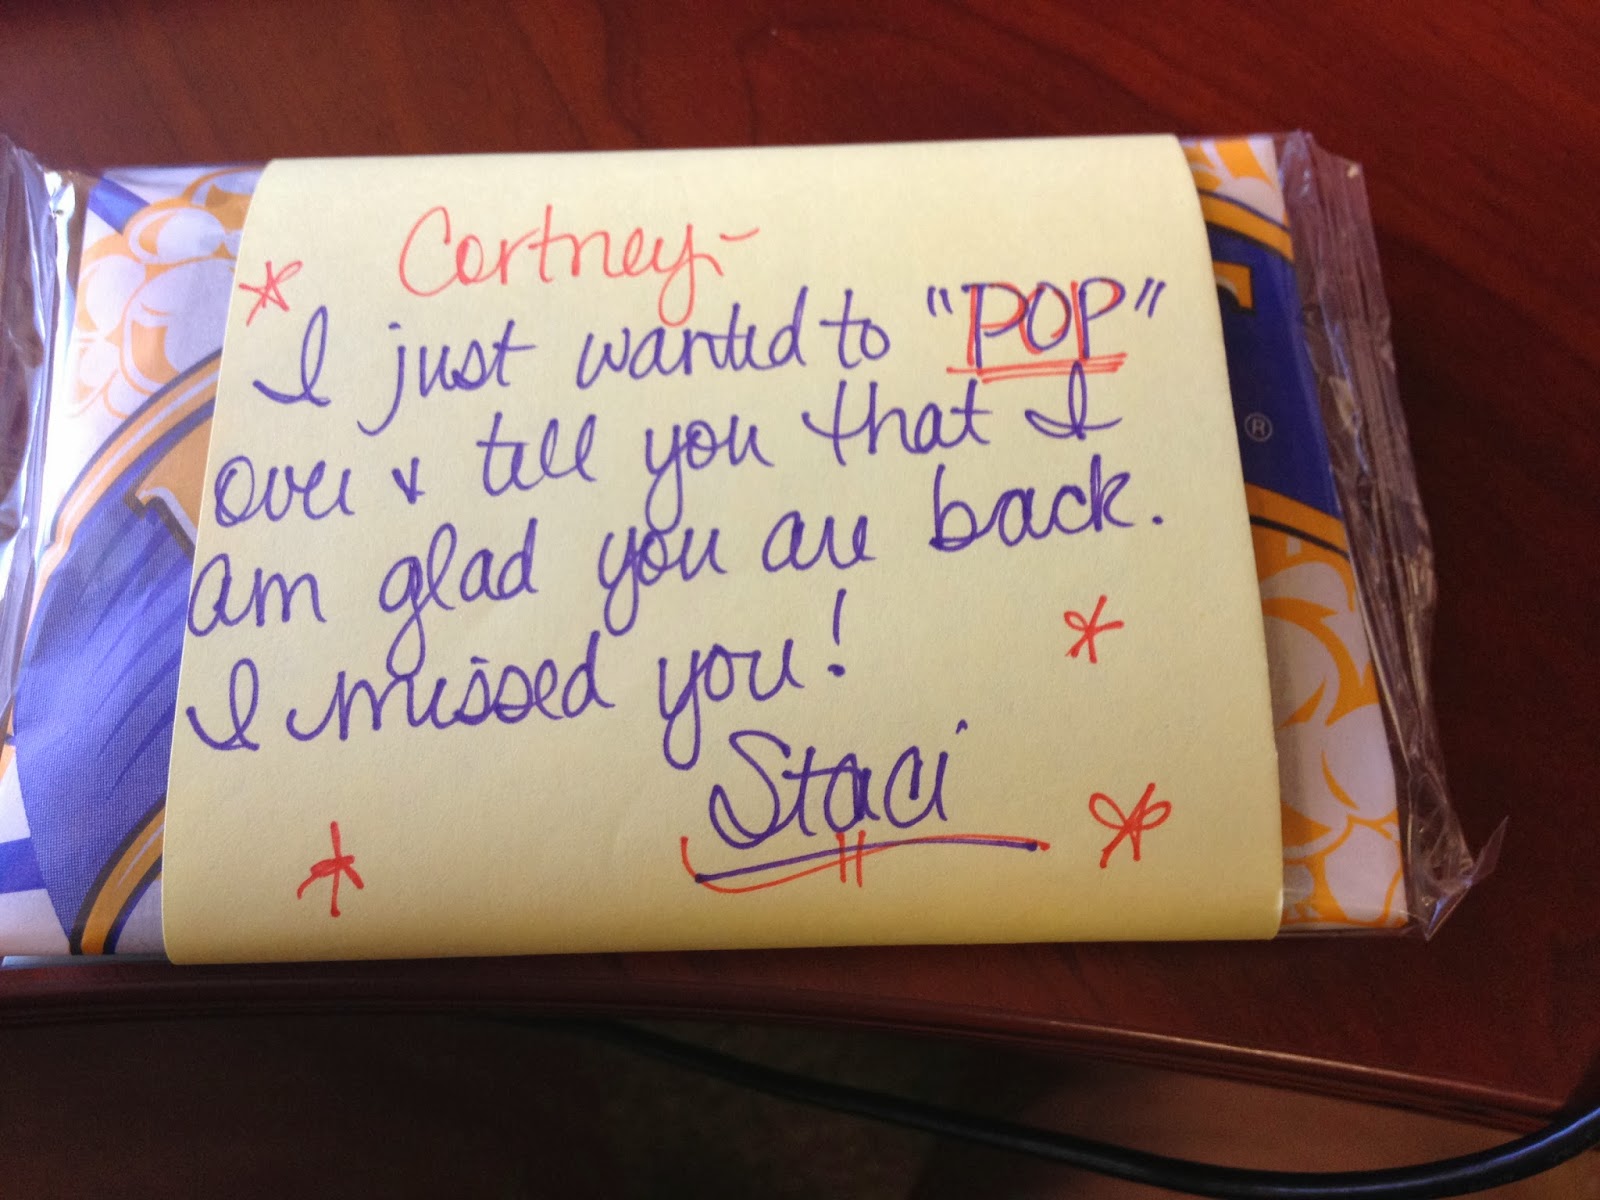 Cortney-
I just wanted to "POP"
over & tell you that I
am glad you are back.
I missed you!
Staci
®